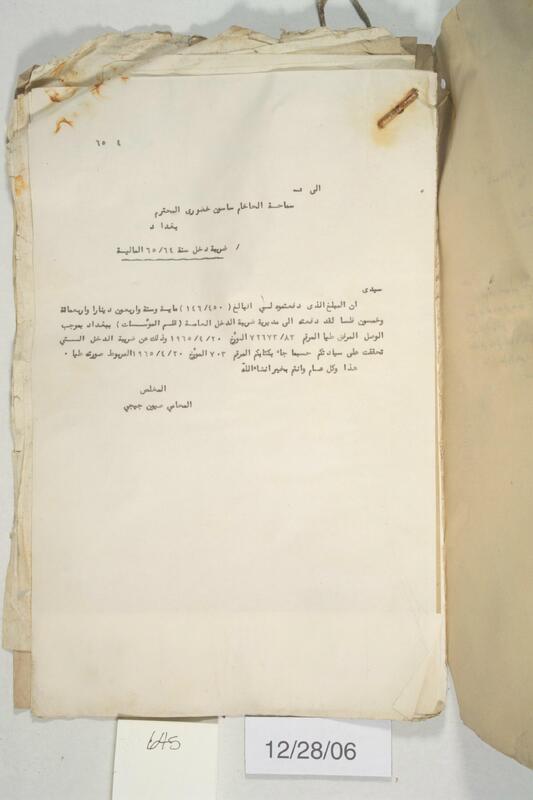 ٤ ٦٥
الى /
سماحة الحاخام ساسون خضورى المحترم
بغداد
/ ضريبة دخل سنة ٦٥/٦٤ المالية
سيدى
ان المبلغ الذى دفعتموه لي البالغ (١٤٦/٤٥٠) مايه وستة واربعون دينارا واربعمائة
وخمسون فلسا لقد دفعته الى مديرية ضريبة الدخل العامة (قسم المؤسسات) ببغداد بموجب
الوصل المرفق طيا المرقم ٧٢٦٧٣/٨٣ المؤرخ ١٩٦٥/٤/٢٠ وذلك عن ضريبة الدخل الستي
تحققت على سيادتكم حسبما جاء بكتابكم المرقم ٧٠٣ المؤرخ ١٩٦٥/٤/٢٠ المربوط صورته طيا ٠
هذا وكل عام وانتم بخير انشاءالله
المخلص
المحامي
645
12/28/06